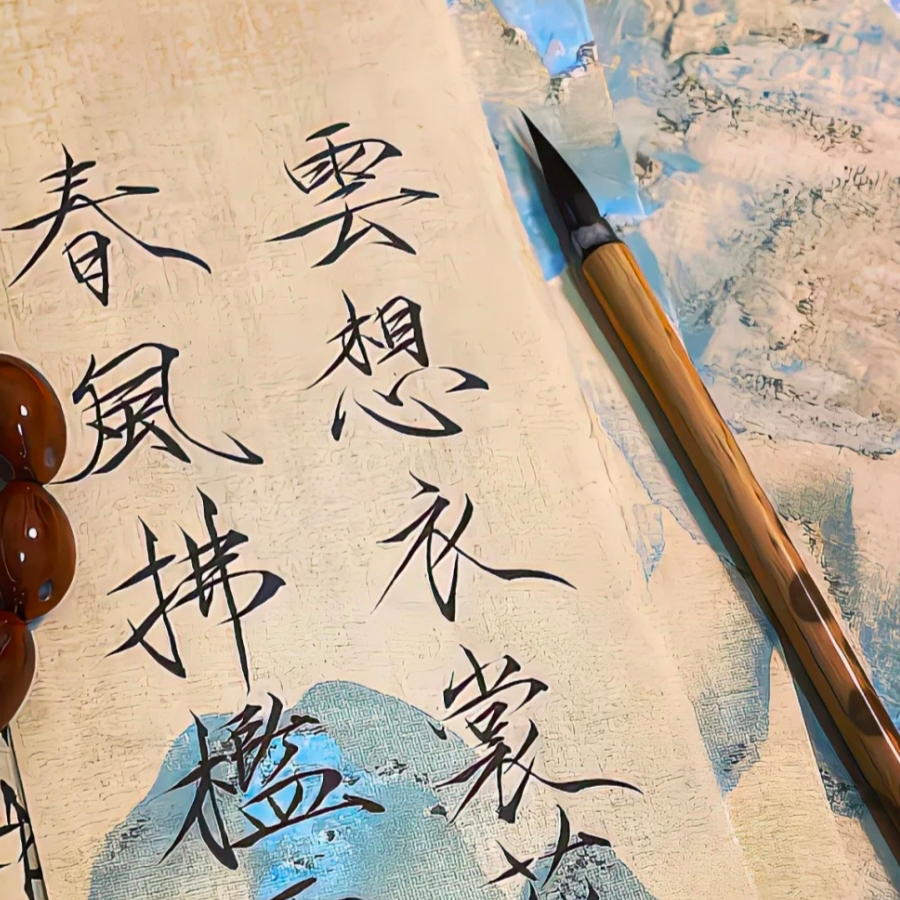 雲想衣裳花
春風拂檻